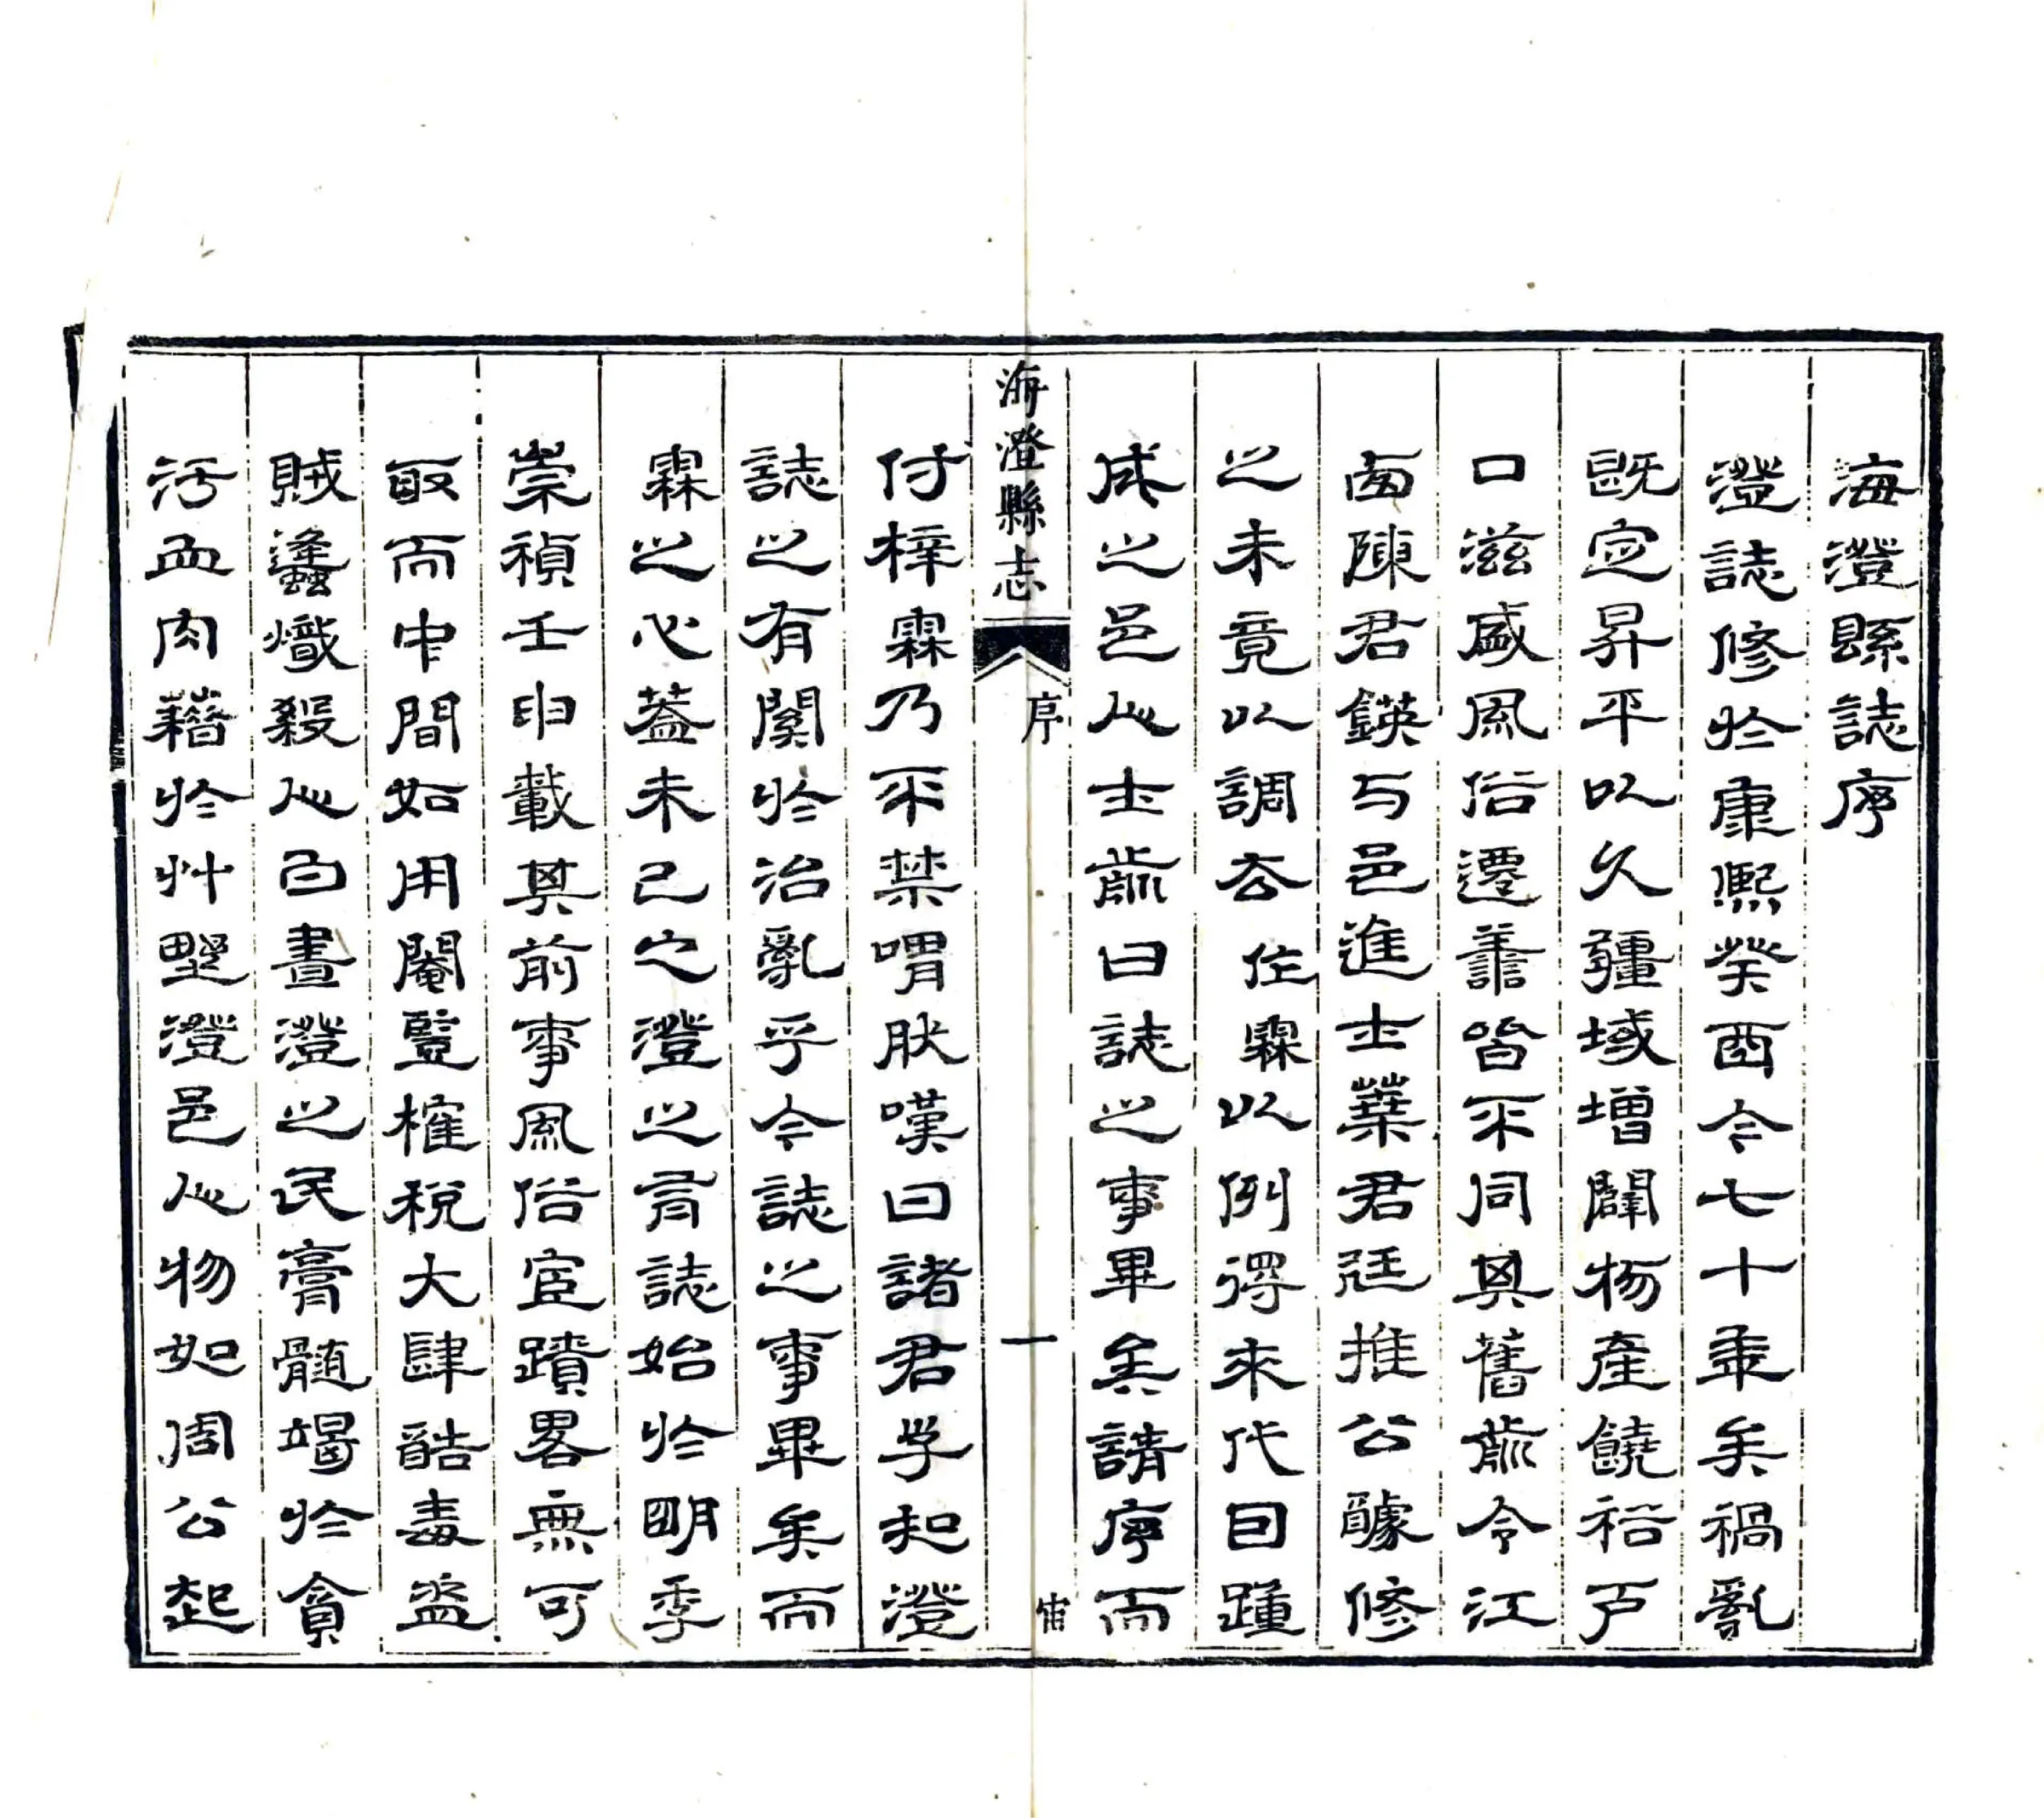 海澄縣誌序
澄誌修於康熙癸酉今七十年矣禍亂
既定昇平以久疆域增闢物產饒裕戸
口滋盛風俗遷譱皆不同其舊前令江
西陳君鍈与邑進士葉君廷推公醵修
之未竟以調去住霖以例得来代目踵
成之邑人士前曰誌之事畢矣請序而
海澄縣志
序
一
付梓霖乃不禁喟肰嘆曰諸君学知澄
誌之有関於治亂乎今誌之事畢矣而
霖之心葢未已也澄之有誌始於明季
崇禎壬申載其前事風俗宦蹟畧無可
取而中間如用閹豎榷稅大肆酷毒盜
賊蠭熾殺人白晝澄之民膏髓竭於貪
汚血肉藉於艸野澄邑人物如周公起